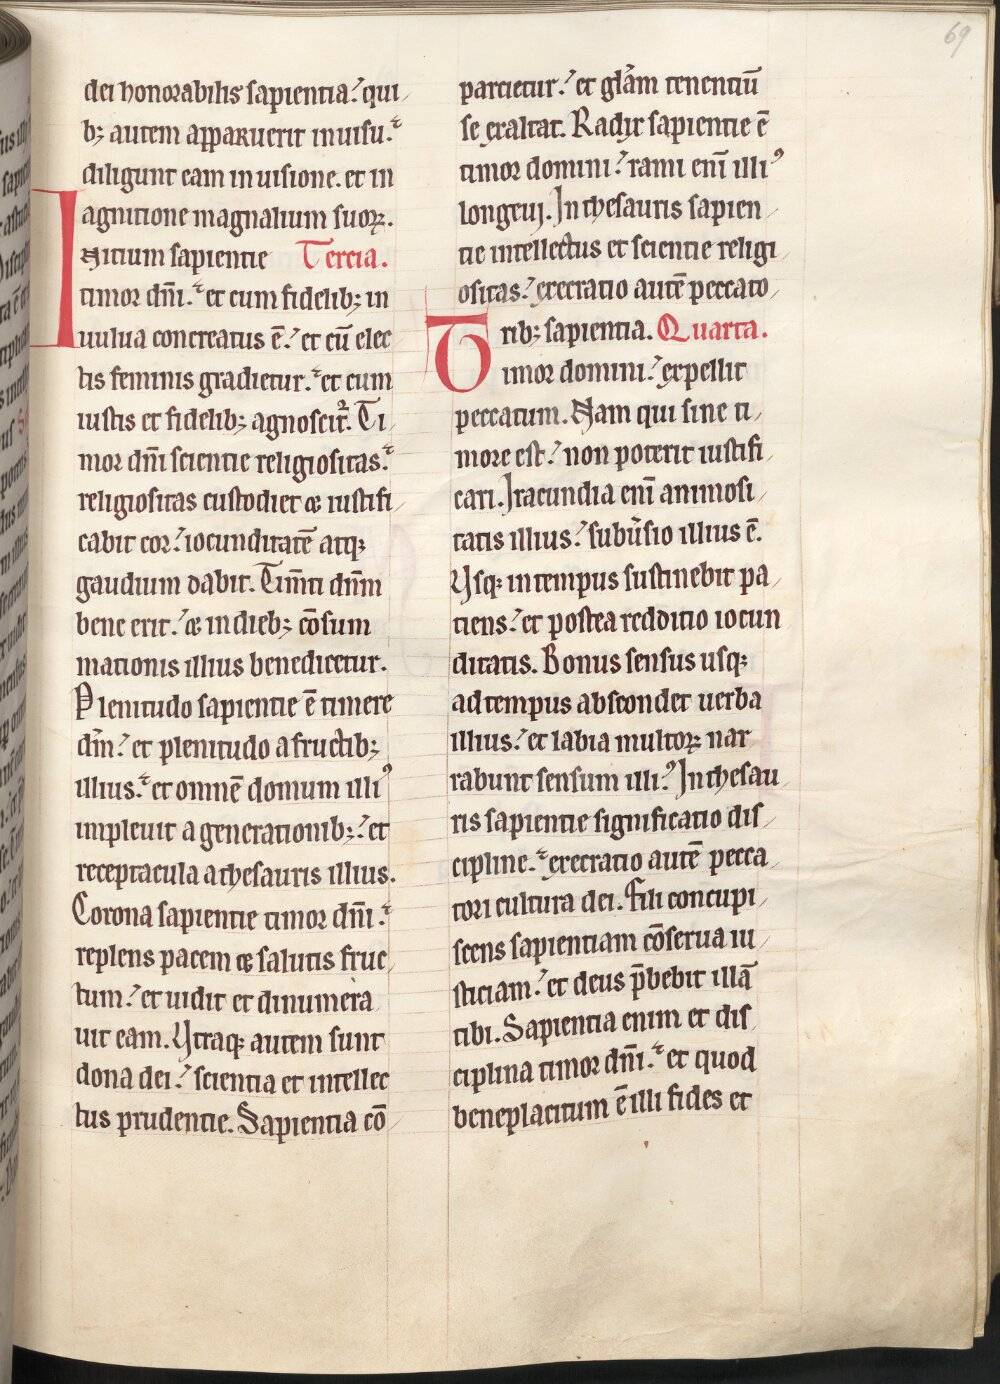 69
dei honorabilis sapientia. qui
b; autem apparuerit in uisu.
diligunt eam in uisione. et in
agnitione magnalium suoꝝ.
Initium sapientie Tercia.
timor dn̄i. et cum fidelib; in
uulua concreatus ē. et cū elec
tis feminis gradietur. et cum
iustis et fidelib; agnoscit᷑. Ti
mor dn̄i scientie religiositas.
religiositas custodiet & iustifi
cabit cor. iocunditatē atq;
gaudium dabit. Tim̄ti dn̄m
bene erit. & in dieb; cōsum
mationis illius benedicetur.
Plenitudo sapientie ē timere
dm̄. et plenitudo a fructib;
illius. et omnē domum illiꝰ
impleuit a generationib;. et
receptacula a thesauris illius.
Corona sapientie timor dn̄i.
replens pacem & salutis fruc
tum. et uidit et dinumera
uit eam. Vtraq; autem sunt
dona dei. scientia et intellec
tus prudentie. Sapientia cō
parcietur. et glām tenentiū
se exaltat. Radix sapientie ē
timor domini. rami eni̅ illiꝰ
longeui. In thesauris sapien
tie intellectus et scientie religi
ositas. execratio autē peccato
rib; sapientia. Quarta.
Timor domini. expellit
peccatum. Nam qui sine ti
more est. non poterit iustifi
cari. Iracundia eni̅ animosi
tatis illius. subūsio illius ē.
Vsq; in tempus sustinebit pa
tiens. et postea redditio iocun
ditatis. Bonus sensus usq;
ad tempus abscondet uerba
illius. et labia multoꝝ nar
rabunt sensum illiꝰ. In thesau
ris sapientie significatio dis
cipline. execratio autē pecca
tori cultura dei. Fili concupi
scens sapientiam cōserua iu
sticiam. et deus p̄bebit illā
tibi. Sapientia enim et dis
ciplina timor dn̄i. et quod
beneplacitum ē illi fides et